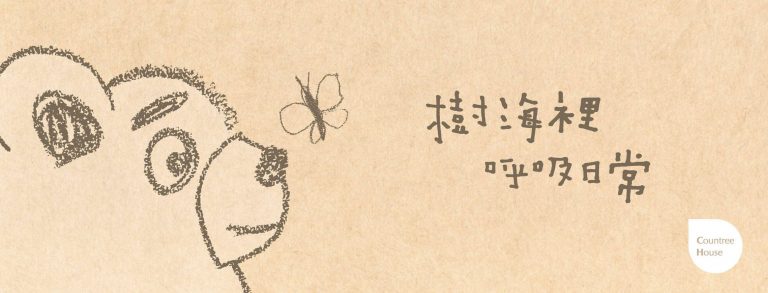 樹海裡
呼吸日常
Countree
House